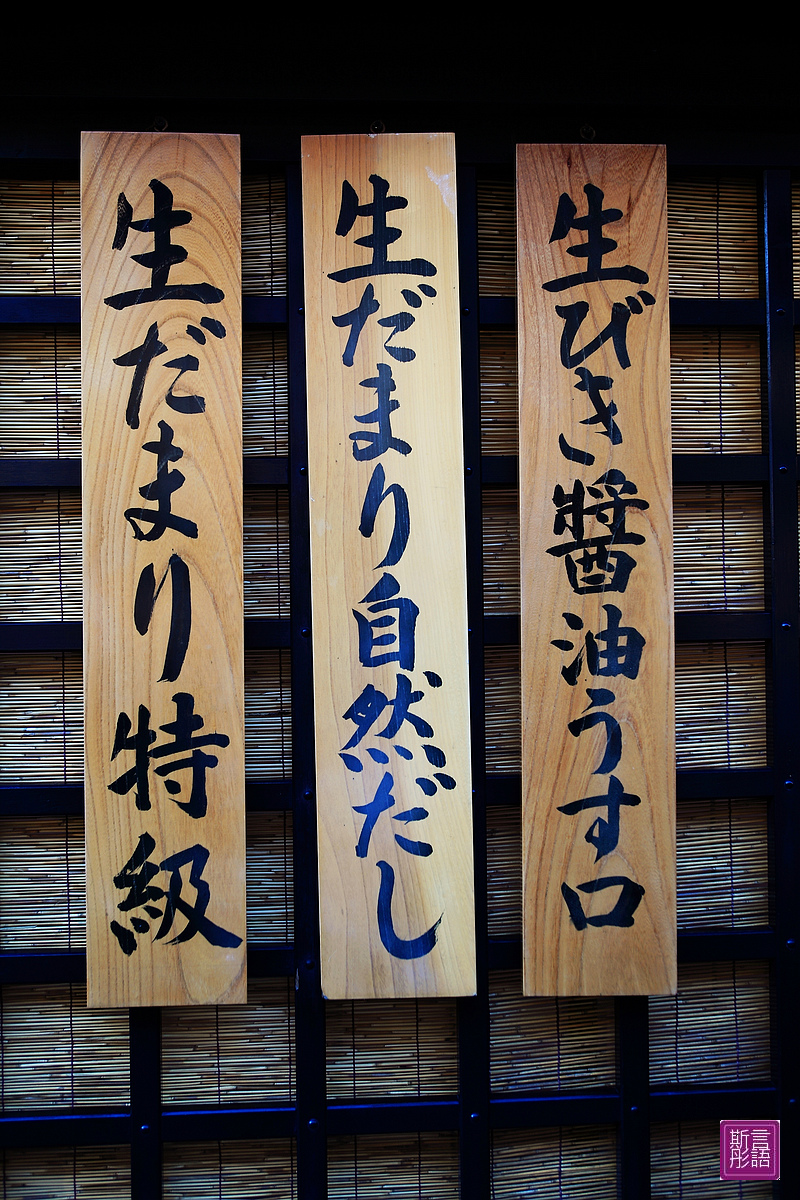 生びき醤油うす口
生だまり自然だし
生だまり特級
言語
斯彤